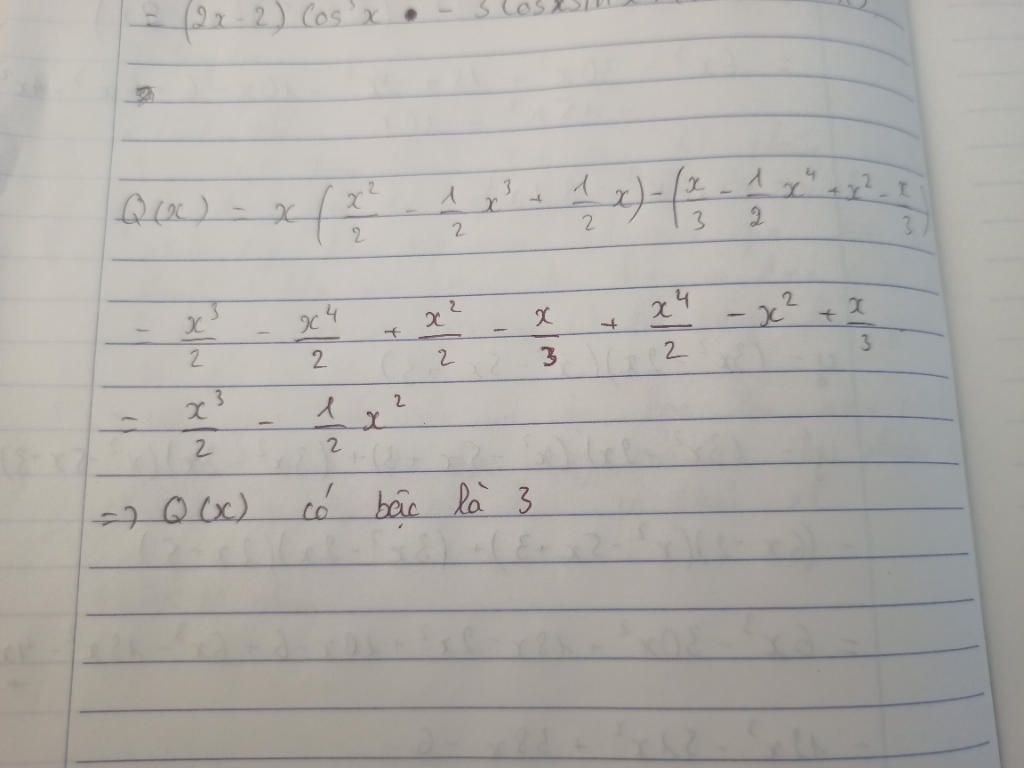 = (2x-2) cos³x • - 3 cosx sin
Q(x) = x (x²/2 - 1/2 x³ + 1/2 x) - (x/3 - 1/2 x⁴ + x² - x/3)
= x³/2 - x⁴/2 + x²/2 - x/3 + x⁴/2 - x² + x/3
= x³/2 - 1/2 x²
=> Q(x) có bậc là 3